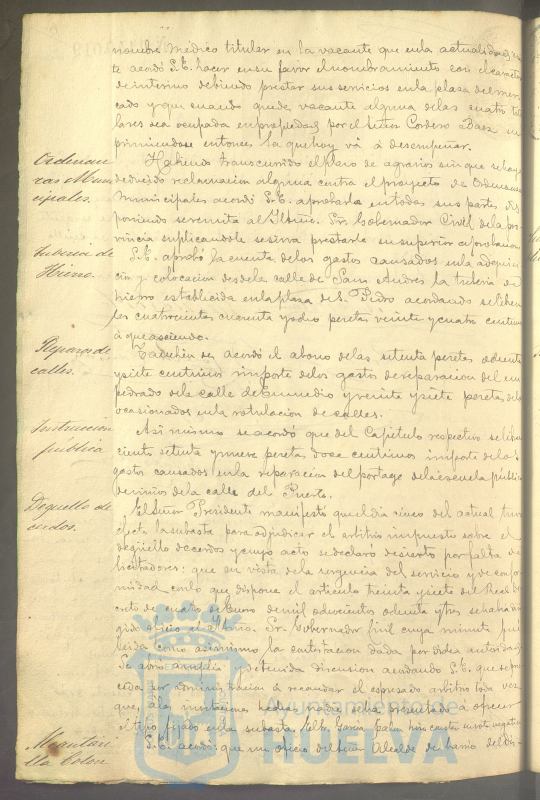 nombre médico titular en la vacante que en la actualidad
te acordó S.E. hacer en su favor el nombramiento con el caracter
de interino debiendo prestar sus servicios en la plaza del mer-
cado y que cuando quede vacante alguna de las cuatro titu
lares sea ocupada en propiedad por el Señor Cordero Baez su
primiendose entonces la que hoy vá á desempeñar.
Ordenan
zas Muni
cipales.
Habiendo transcurrido el plazo de agravios sin que se haya
deducido reclamacion alguna contra el proyecto de Ordenanzas
Municipales acordó S.E. aprobarla en todas sus partes dis
poniendo se remita al Iltmo. Sr. Gobernador Civil de la pro
vincia suplicandole se sirva prestarle su superior aprobacion
Tuberia de
Hierro.
S.E. aprobó la cuenta de los gastos causados en la adquisi
cion y colocacion desde la calle de San Andres la tuberia de
hierro establecida en la plaza de S. Pedro acordando se liben
les cuatrocientas cuarenta y ocho pesetas veinte y cuatro centimos
á que asciende.
Reparos de
calles.
Tambien se acordó el abono de las setenta pesetas ochenta
y siete centimos importe de los gastos de reparacion del em
pedrado de la calle de Enmedio y veinte y siete pesetas de los
ocasionados en la rotulacion de calles.
Instruccion
pública
Asi mismo se acordó que del Capitulo respectivo se libren
ciento setenta y nueve pesetas doce centimos importe de los
gastos causados en la reparacion del portage de la escuela pública
de niños de la calle del Puerto.
Degüello de
cerdos.
El Señor Presidente manifestó que el dia cinco del actual tuvo
efecto la subasta para adjudicar el arbitrio impuesto sobre el
degüello de cerdos y cuyo acto se declaró desierto por falta de
licitadores: que en vista de la urgencia del servicio y de confor
midad con lo que dispone el articulo treinta y siete del Real De
creto de cuatro de Enero de mil ochocientos ochenta y tres se habia di
gido oficio al Iltmo. Sr. Gobernador Civil cuya minuta fué
leida como asimismo la contestacion dada por dicha autoridad
Se abrió amplia y detenida discusion acordando S.E. que se pro
ceda por administracion á recaudar el espresado arbitrio toda vez
que, á las invitaciones hechas nadie se ha prestado á ofrecer
el tipo fijado en la subasta,
Alcantari
lla Colon
S.E. acordó: que un oficio del Señor Alcalde de barrio del dis-
Ayuntamiento de
HUELVA